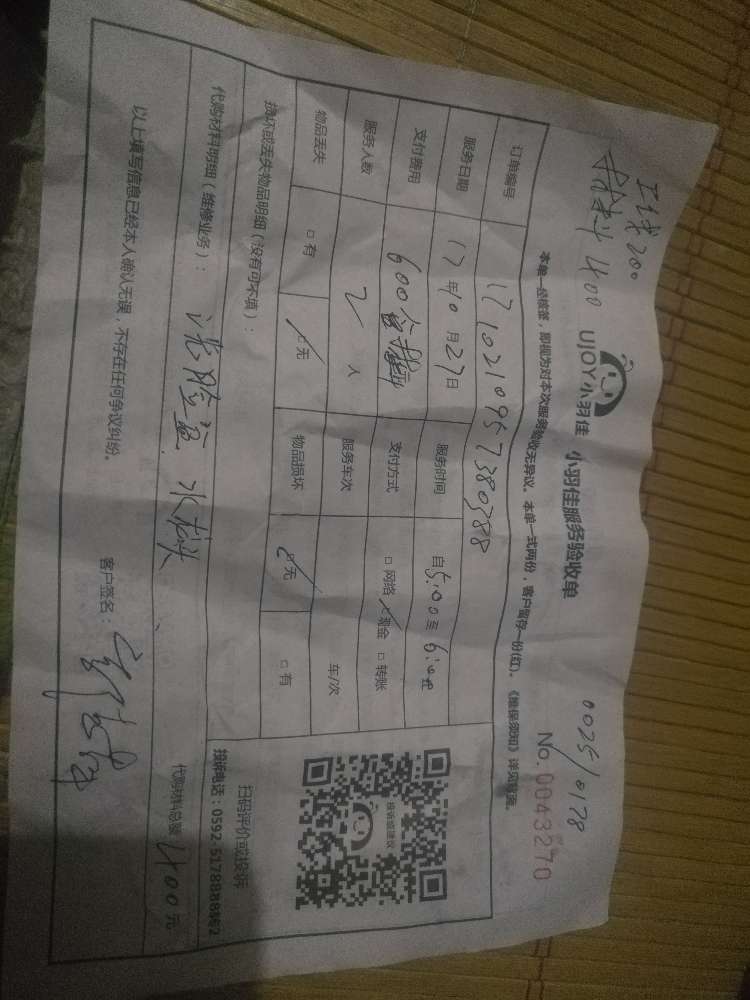 工钱200
材料400
UJOY小羽佳 小羽佳服务验收单
0025/0178
No. 0043270
本单一经核签，即视为对本次服务验收无异议。本单一式两份，客户留存一份(红)。《维保须知》详见背面。
订单编号 1710210957380388
服务日期 17年10月27日 服务时间 自5:00至6:00
支付费用 600含材料 支付方式 □网络 ☑现金 □转账
服务人数 2人 服务车次 车/次
物品丢失 □有 ☑无 物品损坏 ☑无 □有
损坏或丢失物品明细（没有可不填）：
接客管理仪
扫码评价或投诉
投诉电话：0592-5178888转2
代购材料明细（维修业务）： 洗脸盆、水龙头、 代购材料总额 400元
以上填写信息已经本人确认无误，不存在任何争议纠纷。 客户签名：